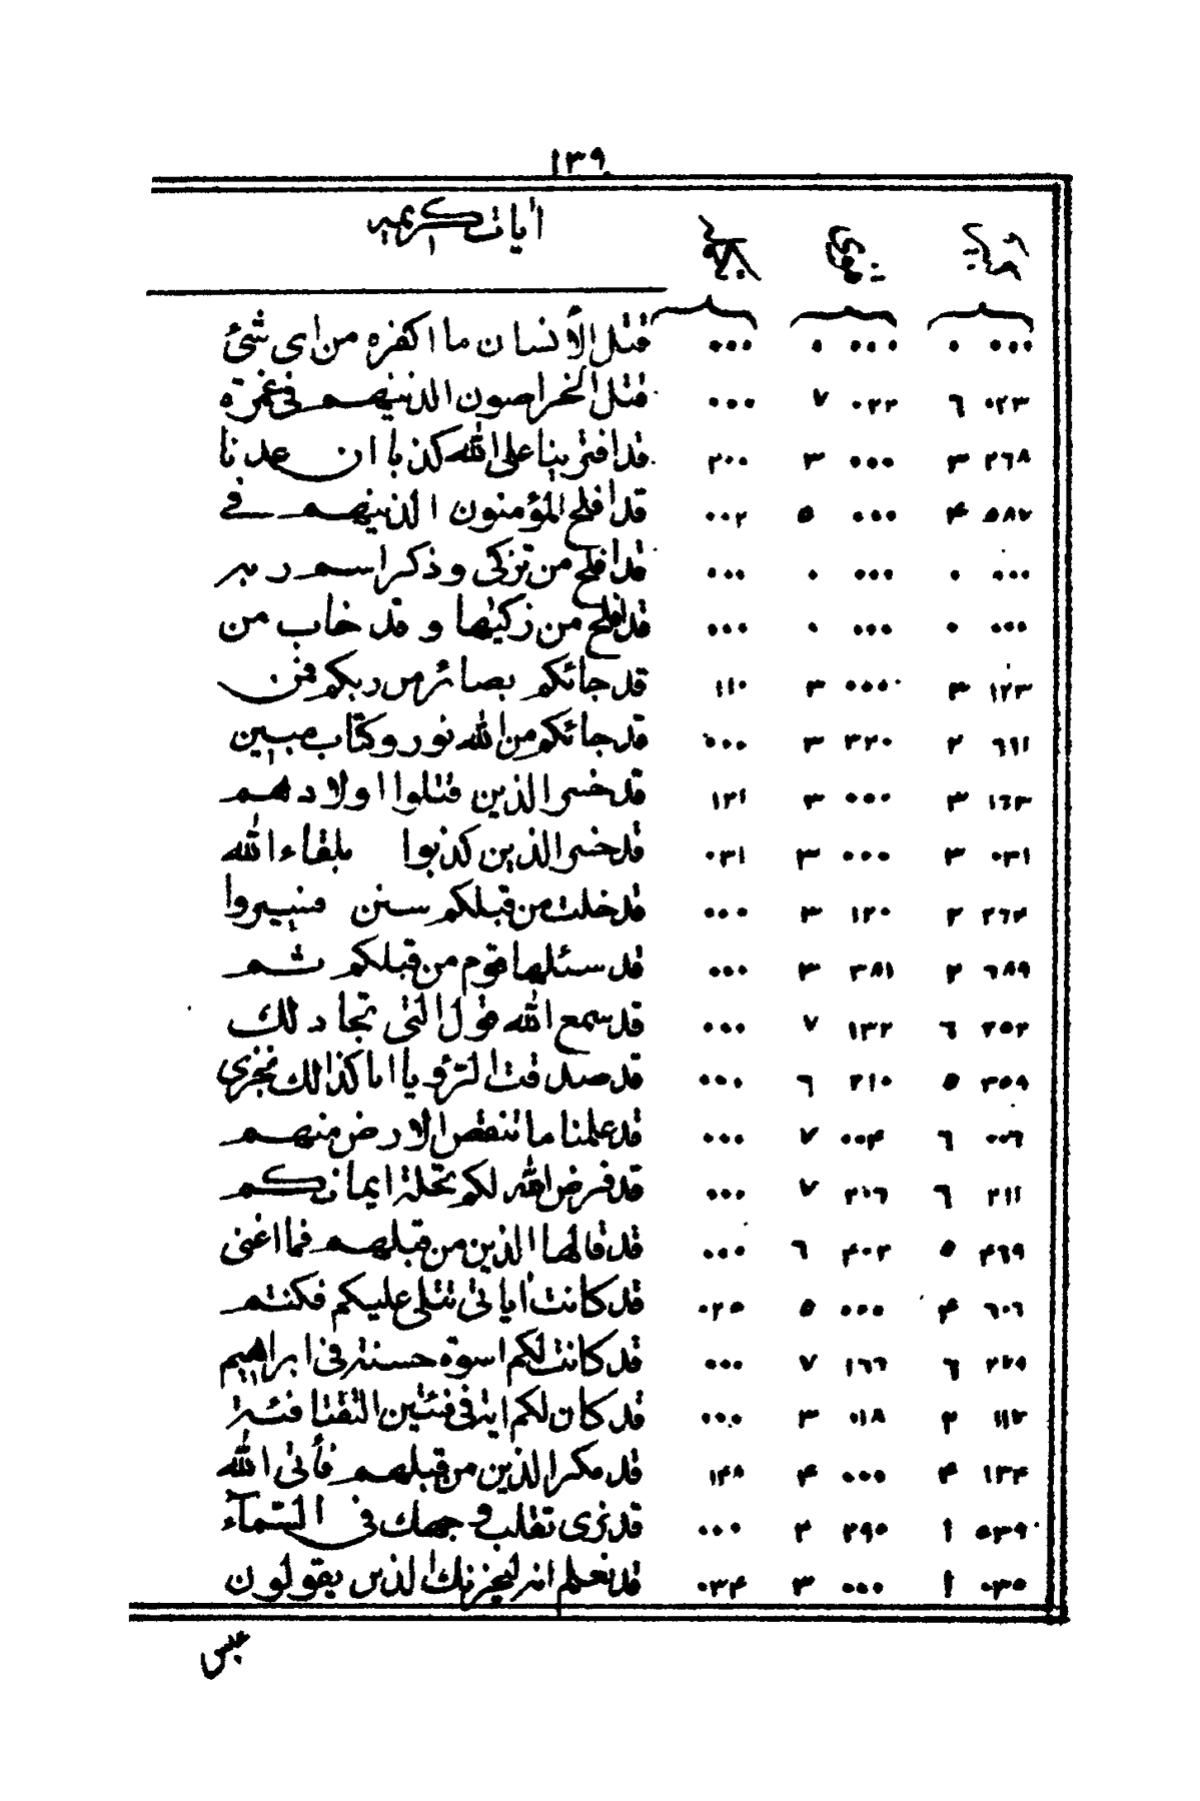 ١٣٩
اٰیات کریمه
٠٠٠ ٠ ٠٠٠ ٠ ٠٠٠ قتل الأنسان ما اکفره من ای شئ
٠٢٣ ٦ ٠٢٢ ٧ ٠٠٠ قتل الخراصون الذینهم فی غمرة
٢٦٨ ٣ ٠٠٠ ٣ ٢٠٠ قد افترینا علی الله کذبا ان عدنا
٥٨٧ ۴ ٠٠٠ ٥ ٠٠٢ قد افلح المؤمنون الذینهم فی
٠٠٠ ٠ ٠٠٠ ٠ ٠٠٠ قد افلح من تزکی و ذکر اسم ربه
٠٠٠ ٠ ٠٠٠ ٠ ٠٠٠ قد افلح من زکیٰها و قد خاب من
١٢٣ ٣ ٠٠٠ ٣ ١١٠ قد جائکم بصائر من ربکم فمن
٦١١ ٢ ٣٢٠ ٣ ٠٠٠ قد جائکم من الله نور و کتاب مبین
١٦٣ ٣ ٠٠٠ ٣ ١٢١ قد خسر الذین قتلوا اولادهم
٠٣١ ٣ ٠٠٠ ٣ ٠٣١ قد خسر الذین کذبوا بلقاء الله
٢٦٢ ٢ ١٢٠ ٣ ٠٠٠ قد خلت من قبلکم سنن فسیروا
٦٨٩ ٢ ٣٨١ ٣ ٠٠٠ قد سئلها قوم من قبلکم ثم
٢٥٢ ٦ ١٣٢ ٧ ٠٠٠ قد سمع الله قول التی تجادلك
٣٥٩ ٥ ٢١٠ ٦ ٠٠٠ قد صدقت الرؤیا انا کذالك نجزی
٠٠٦ ٦ ٠٠۴ ٧ ٠٠٠ قد علمنا ما تنقص الارض منهم
٢١١ ٦ ٢٠٦ ٧ ٠٠٠ قد فرض الله لکم تحلة ایمانکم
۴٦٩ ٥ ۴٠٢ ٦ ٠٠٠ قد قالها الذین من قبلهم فما اغنی
٦٠٦ ۴ ٠٠٠ ٥ ٠٢٥ قد کانت اٰیاتی تتلی علیکم فکنتم
٢٧٥ ٦ ١٦٦ ٧ ٠٠٠ قد کانت لکم اسوة حسنة فی ابراهیم
١١٧ ٢ ٠١٨ ٣ ٠٠٠ قد کان لکم ایة فی فئتین التقتا فئة
١٣٢ ۴ ٠٠٠ ۴ ١۴٨ قد مکر الذین من قبلهم فأتی الله
٥٣٩ ١ ٢٩٥ ٢ ٠٠٠ قد نری تقلب وجهك فی السمآء
٠٣٥ ١ ٠٠٠ ٣ ٠٣۴ قد نعلم انه لیحزنك الذی یقولون
عبس